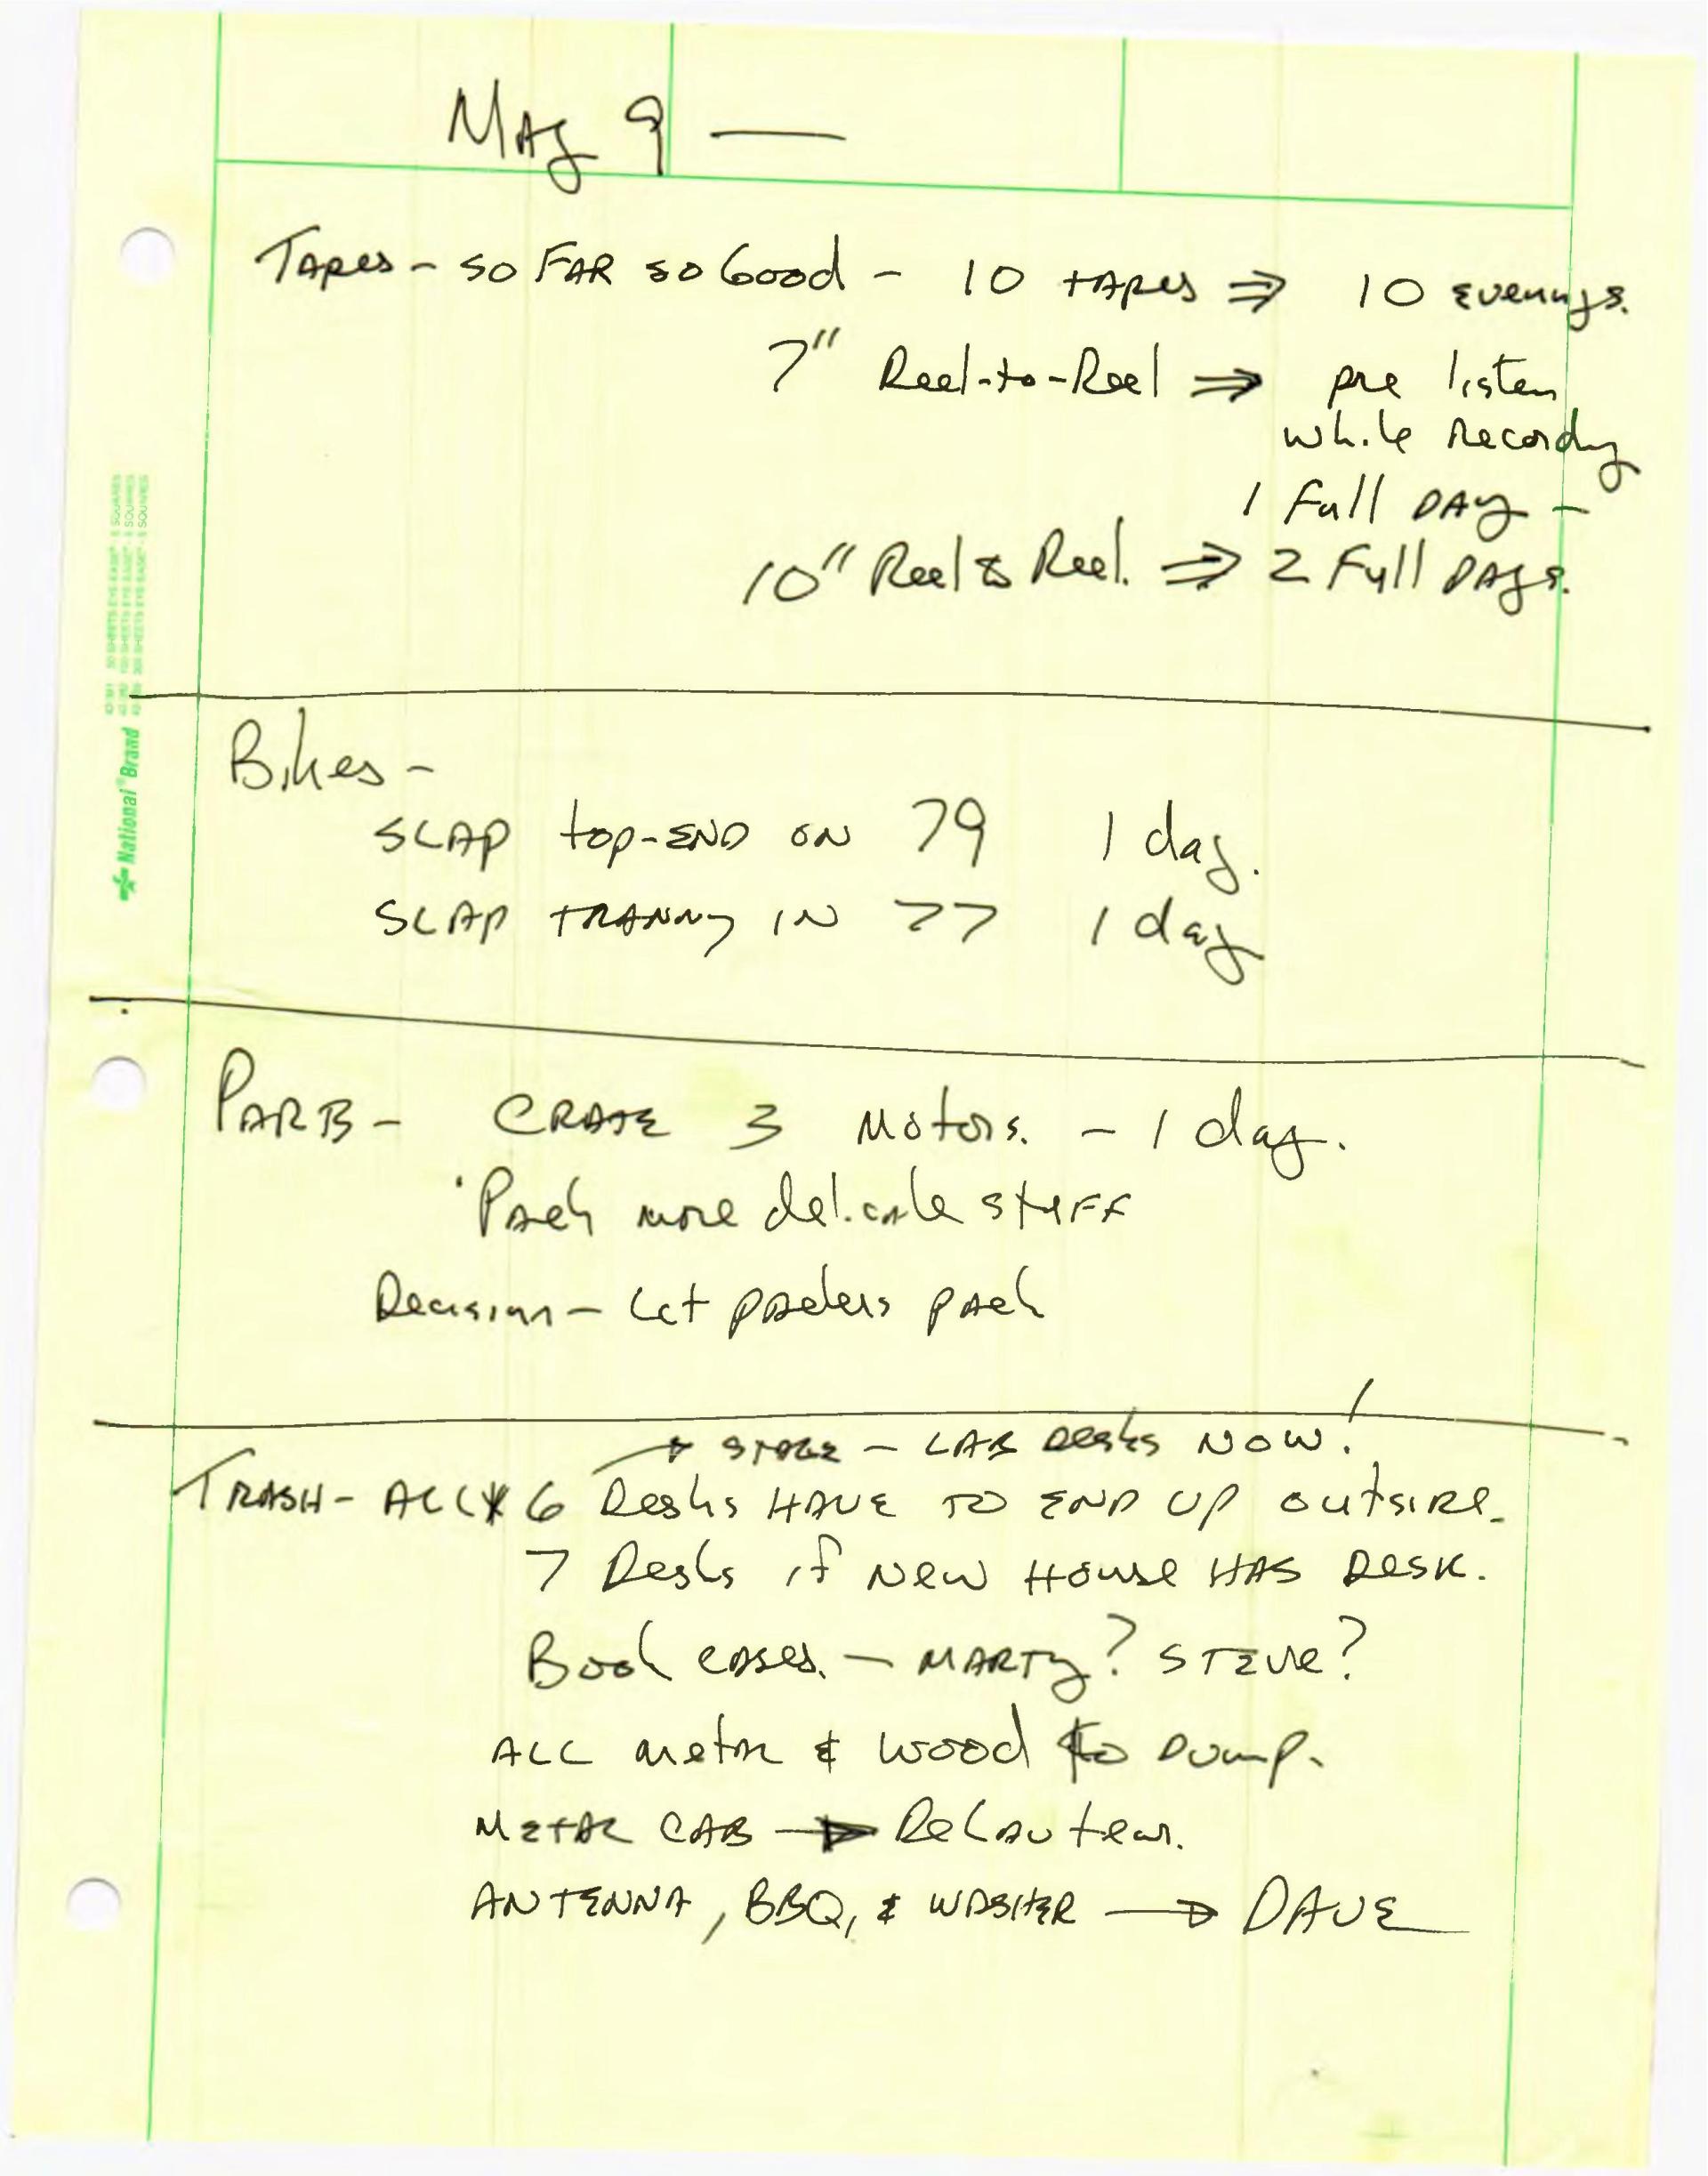 May 9 —
Tapes - so far so Good - 10 tapes ⇒ 10 evenings.
7" Reel-to-Reel ⇒ pre listen
while Recording
1 Full Day -
10" Reel to Reel. ⇒ 2 Full Days.
Bikes -
SLAP top-END ON 79 1 day.
SLAP TRANNY IN 77 1 day
PARTS - CRATE 3 Motors. - 1 day.
Pack more delicate stuff
Decision - Let packers pack
→ STAGE - LAB Desks NOW!
TRASH - ALL 6 Desks HAVE TO END UP outside.
7 Desks if New House HAS Desk.
Book cases. - MARTY? STEVE?
ALL metal & wood to Dump.
METAL CAB →
ANTENNA, BBQ, & WASHER → DAVE
National Brand